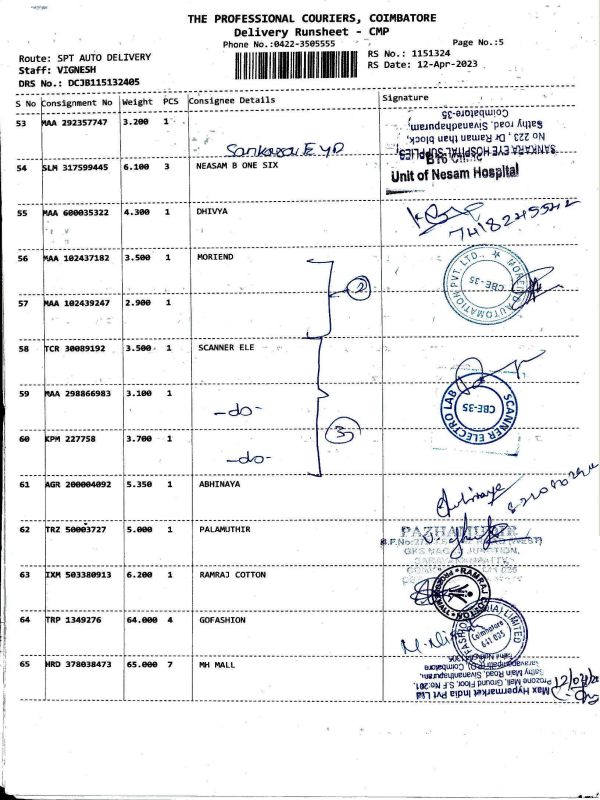 THE PROFESSIONAL COURIERS, COIMBATORE
Delivery Runsheet - CMP
Phone No.:0422-3505555
Page No.:5
Route: SPT AUTO DELIVERY
RS No.: 1151324
Staff: VIGNESH
RS Date: 12-Apr-2023
DRS No.: DCJB115132405
S No Consignment No Weight PCS Consignee Details Signature
53 MAA 292357747 3.200 1
SANKARA EYE HOSPITAL SUPPLIES,
No 223, Dr Raman than block,
Sathy road, Sivanandhapuram,
Coimbatore-35
54 SLM 317599445 6.100 3 NEASAM B ONE SIX
Unit of Nesam Hospital
55 MAA 600035322 4.300 1 DHIVYA
7418245542
56 MAA 102437182 3.500 1 MORIEND
2
CBE-35
57 MAA 102439247 2.900 1
58 TCR 30089192 3.500 1 SCANNER ELE
59 MAA 298866983 3.100 1
-do-
3
SCANNER ELECTRO LAB
CBE-35
60 KPM 227758 3.700 1
-do-
61 AGR 200004092 5.350 1 ABHINAYA
Abhinaya
62 TRZ 50003727 5.000 1 PALAMUTHIR
PAZHAMUTHIR
63 IXM 503380913 6.200 1 RAMRAJ COTTON
RAMRAJ COTTON
64 TRP 1349276 64.000 4 GOFASHION
Coimbatore
641 035
65 HRD 378038473 65.000 7 MH MALL
Max Hypermarket India Pvt Ltd
Prozone Mall, Ground Floor, S.F.No:201,
Sathy Main Road, Sivananthapuram,
Saravanampatti (P.O), Coimbatore